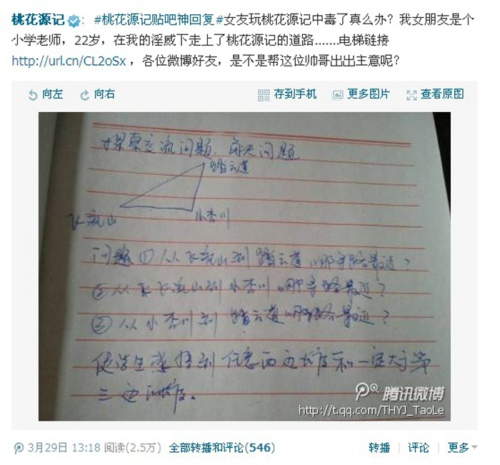 桃花源记：#桃花源记贴吧神回复#女友玩桃花源记中毒了真么办？我女朋友是个
小学老师，22岁，在我的淫威下走上了桃花源记的道路.......电梯链接
http://url.cn/CL2oSx ，各位微博好友，是不是帮这位帅哥出出主意呢？
向左 向右 存到手机 更多图片 查看原图
探索交流问题
问题
踏云道
飞流山
小杏川
问题①从飞流山到踏云道哪条路最近？
②从飞流山到小杏川哪条路最近？
③从小杏川到踏云道哪条路最近？
使学生感悟到任意两边长度和一定大于第
三边的长度。
腾讯微博
http://t.qq.com/THYJ_TaoLe
3月29日 13:18 阅读(2.5万) 全部转播和评论(546) 转播 评论 更多